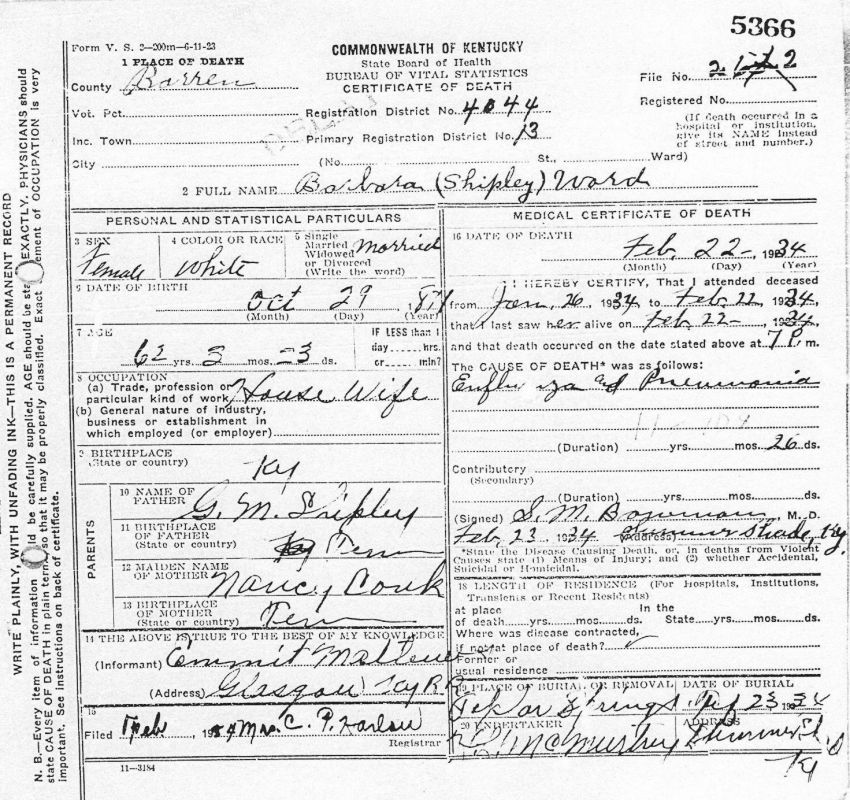 5366
Form V. S. 2—200m—6-11-23
COMMONWEALTH OF KENTUCKY
State Board of Health
BUREAU OF VITAL STATISTICS
CERTIFICATE OF DEATH
1 PLACE OF DEATH
County Barren
File No.
Registered No.
Vot. Pct.
Registration District No. 4044
(If death occurred in a hospital or institution, give its NAME instead of street and number.)
Inc. Town
Primary Registration District No. 13
City
(No. St., Ward)
2 FULL NAME Barbara (Shipley) Word
PERSONAL AND STATISTICAL PARTICULARS
3 SEX
Female
4 COLOR OR RACE
White
5 Single
Married
Widowed
or Divorced
(Write the word)
Married
6 DATE OF BIRTH
Oct 29
(Month) (Day) (Year)
7 AGE
62 yrs. 3 mos. 23 ds.
IF LESS than 1
day hrs.
or min?
8 OCCUPATION
(a) Trade, profession or
particular kind of work House Wife
(b) General nature of industry,
business or establishment in
which employed (or employer)
9 BIRTHPLACE
(State or country)
Ky
PARENTS
10 NAME OF
FATHER G. M. Shipley
11 BIRTHPLACE
OF FATHER
(State or country) Tenn
12 MAIDEN NAME
OF MOTHER Nancy Cook
13 BIRTHPLACE
OF MOTHER
(State or country) Tenn
14 THE ABOVE IS TRUE TO THE BEST OF MY KNOWLEDGE
(Informant) Emmit
(Address) Glasgow Ky R
15
Filed Feb 1934 Mrs. C. P. Harlow
Registrar
11—3184
MEDICAL CERTIFICATE OF DEATH
16 DATE OF DEATH
Feb. 22 - 1934
(Month) (Day) (Year)
I HEREBY CERTIFY, That I attended deceased
from Jan, 26, 1934 to Feb 22 1934,
that I last saw her alive on Feb 22 -, 1934
and that death occurred on the date stated above at 7 P m.
The CAUSE OF DEATH* was as follows:
Enfluenza and Pneumonia
(Duration) yrs. mos. 26 ds.
Contributory
(Secondary)
(Duration) yrs. mos. ds.
(Signed) S. M. Bowman, M. D.
Feb, 23, 1934 (Address) Summer Shade, Ky.
*State the Disease Causing Death, or, in deaths from Violent
Causes state (1) Means of Injury; and (2) whether Accidental,
Suicidal or Homicidal.
18 LENGTH OF RESIDENCE (For Hospitals, Institutions,
Transients or Recent Residents)
at place In the
of death yrs. mos. ds. State yrs. mos. ds.
Where was disease contracted,
if not at place of death?
Former or
usual residence
19 PLACE OF BURIAL OR REMOVAL DATE OF BURIAL
Springs Feb 23 1934
20 UNDERTAKER ADDRESS
McMurtrey Summer Sh.
Ky
WRITE PLAINLY, WITH UNFADING INK—THIS IS A PERMANENT RECORD
N. B.—Every item of information should be carefully supplied. AGE should be stated EXACTLY. PHYSICIANS should
state CAUSE OF DEATH in plain terms, so that it may be properly classified. Exact statement of OCCUPATION is very
important. See instructions on back of certificate.